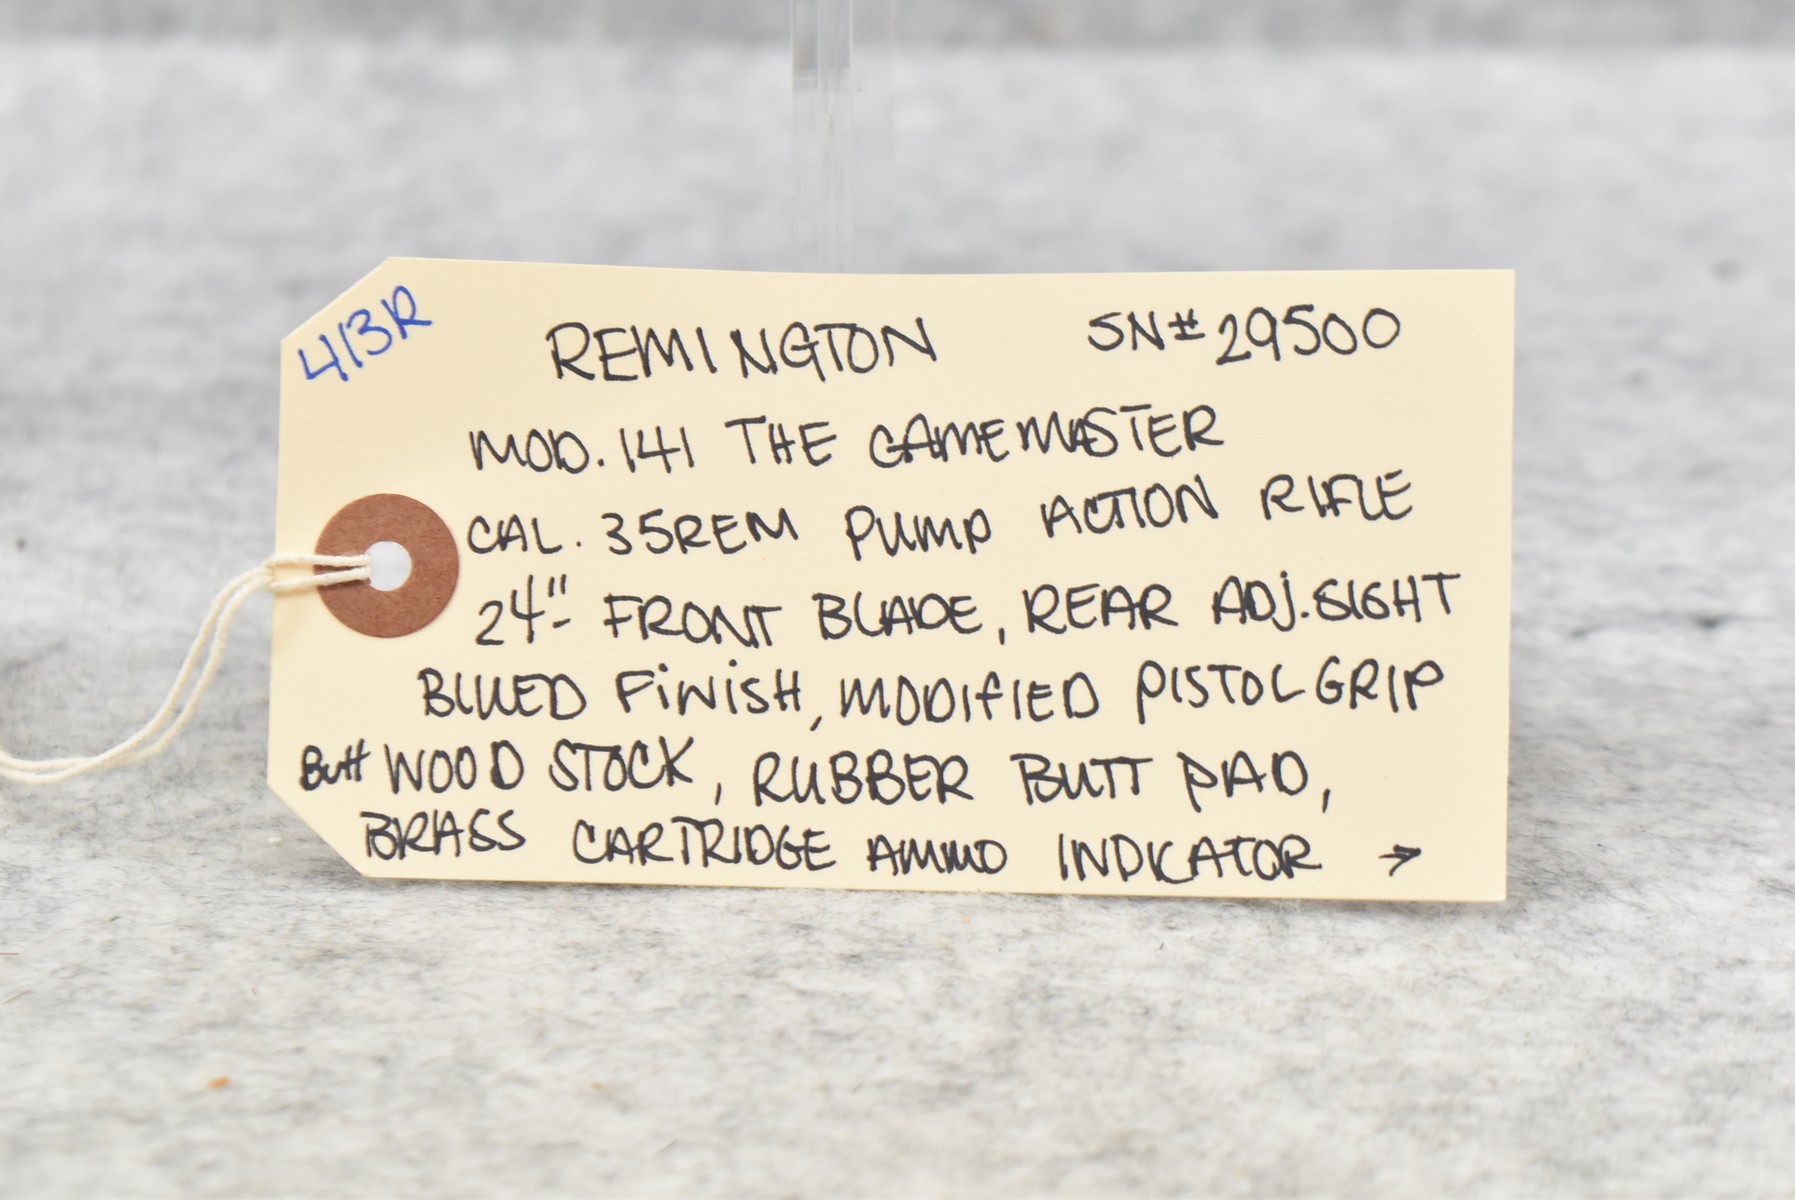 413R
REMINGTON SN# 29500
MOD. 141 THE GAMEMASTER
CAL. 35REM PUMP ACTION RIFLE
24"- FRONT BLADE, REAR ADJ. SIGHT
BLUED FINISH, MODIFIED PISTOL GRIP
Butt WOOD STOCK, RUBBER BUTT PAD,
BRASS CARTRIDGE AMMO INDICATOR →